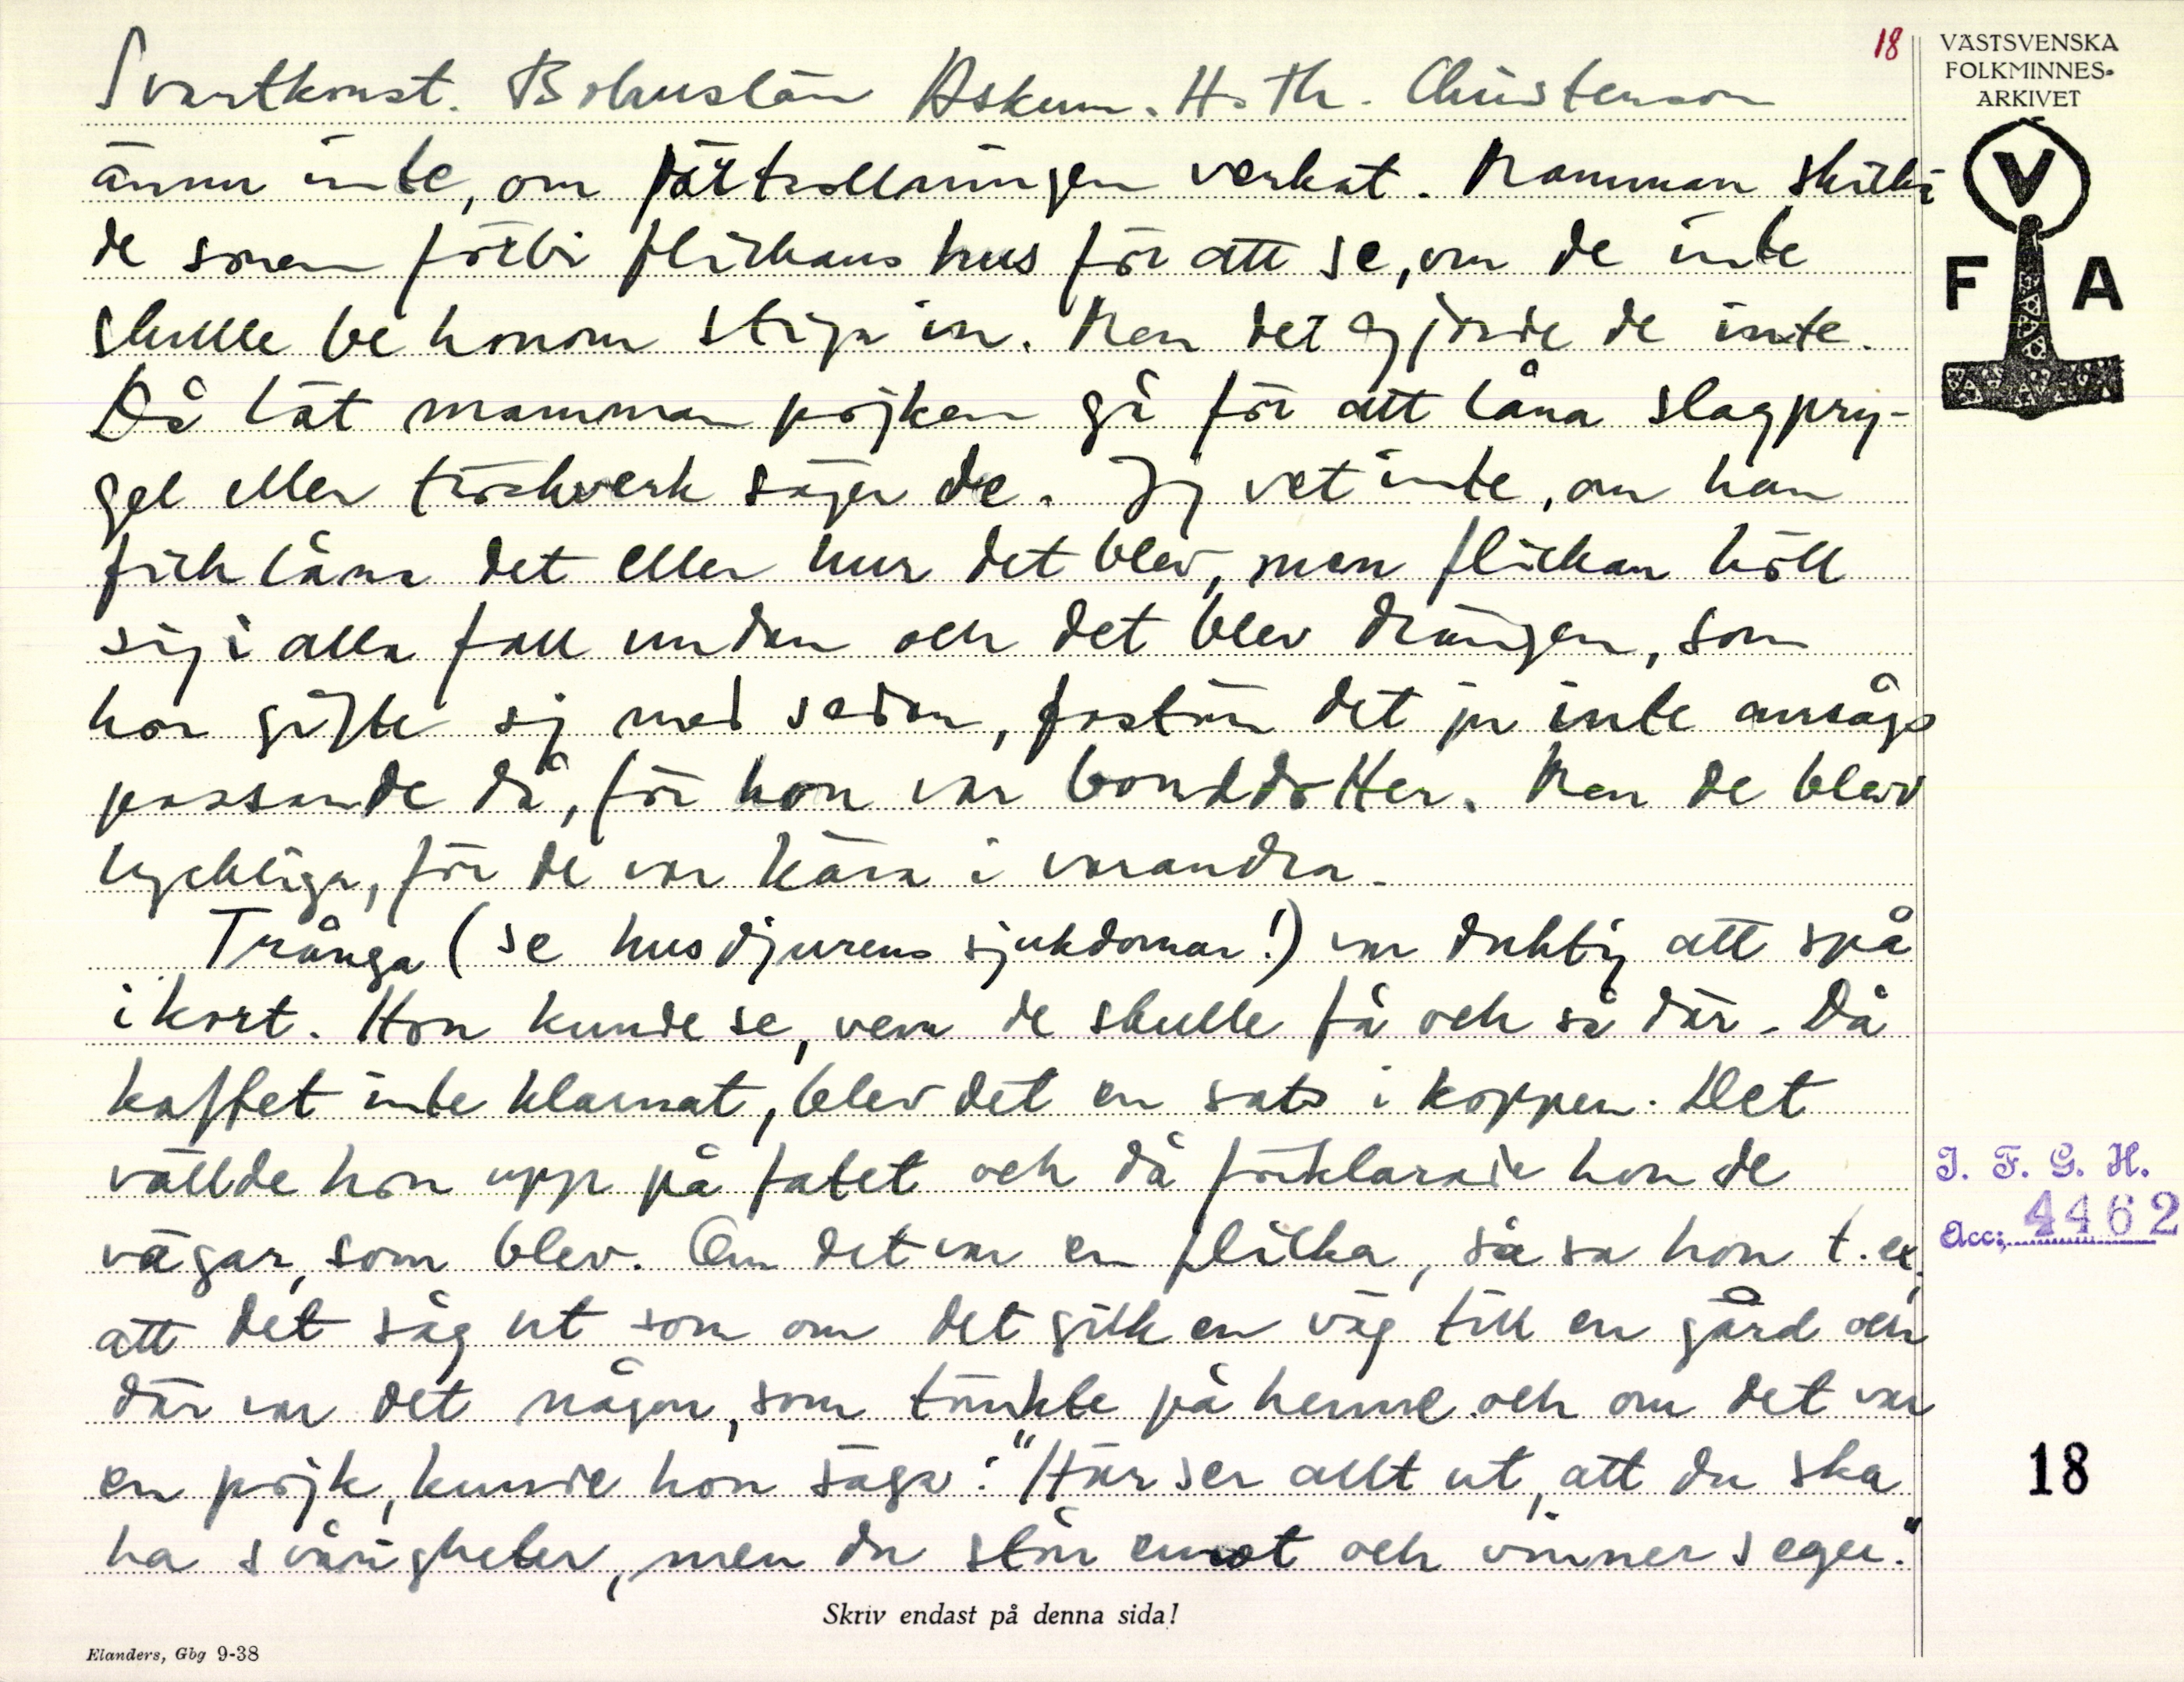 18
VÄSTSVENSKA
FOLKMINNES-
ARKIVET
V
F A
Svartkonst. Bohuslän Askum. H. Th. Christenson
ännu inte, om förtrollningen verkat. Mamman skicka-
de sonen förbi flickans hus för att se, om de inte
skulle be honom stiga in. Men det gjorde de inte.
Då lät mamman pojken gå för att låna slagpry-
gel eller tröskverk säger de. Jag vet inte, om han
fick låna det eller hur det blev, men flickan höll
sig i alla fall undan och det blev drängen, som
hon gifte sig med sedan, fastän det ju inte ansågs
passande då, för hon var bonddotter. Men de blev
lyckliga, för de var kära i varandra.
Trånga (se husdjurens sjukdomar!) var duktig att spå
i kort. Hon kunde se, vem de skulle få och så där. Då
kaffet inte klarnat, blev det en sats i koppen. Det
vällde hon upp på fatet och då förklarade hon de
vägar, som blev. Om det var en flicka, så sa hon t. ex.
att det såg ut som om det gick en väg till en gård och
där var det någon, som tänkte på henne och om det var
en pojk, kunde hon säga: "Här ser allt ut, att du ska
ha svårigheter, men du står emot och vinner seger."
I. F. G. H.
Acc: 4462
18
Skriv endast på denna sida!
Elanders, Gbg 9-38